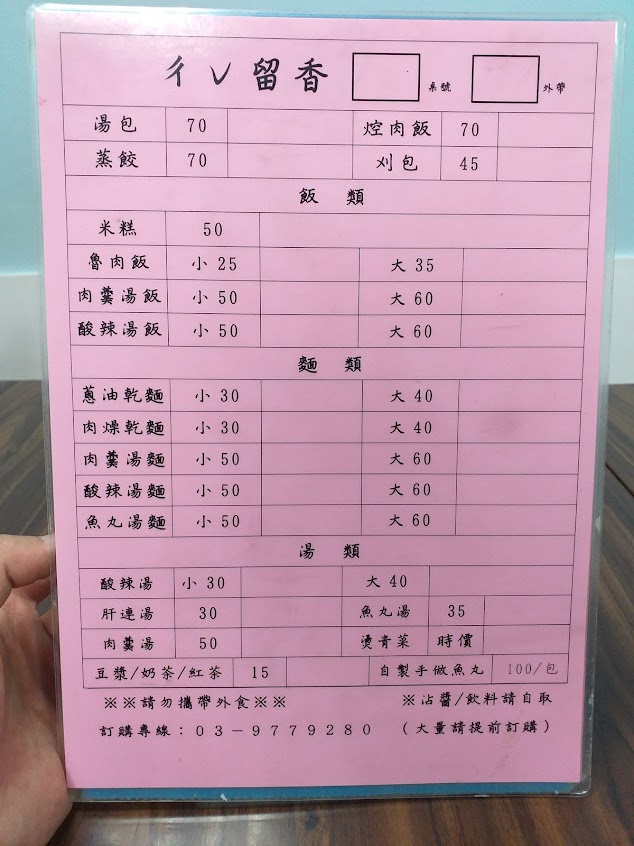 ㄔˇ留香 桌號 外帶
湯包 70 焢肉飯 70
蒸餃 70 刈包 45
飯 類
米糕 50
魯肉飯 小 25 大 35
肉羹湯飯 小 50 大 60
酸辣湯飯 小 50 大 60
麵 類
蔥油乾麵 小 30 大 40
肉燥乾麵 小 30 大 40
肉羹湯麵 小 50 大 60
酸辣湯麵 小 50 大 60
魚丸湯麵 小 50 大 60
湯 類
酸辣湯 小 30 大 40
肝連湯 30 魚丸湯 35
肉羹湯 50 燙青菜 時價
豆漿/奶茶/紅茶 15 自製手做魚丸 100/包
※※請勿攜帶外食※※ ※沾醬/飲料請自取
訂購專線：03－9779280 （大量請提前訂購）